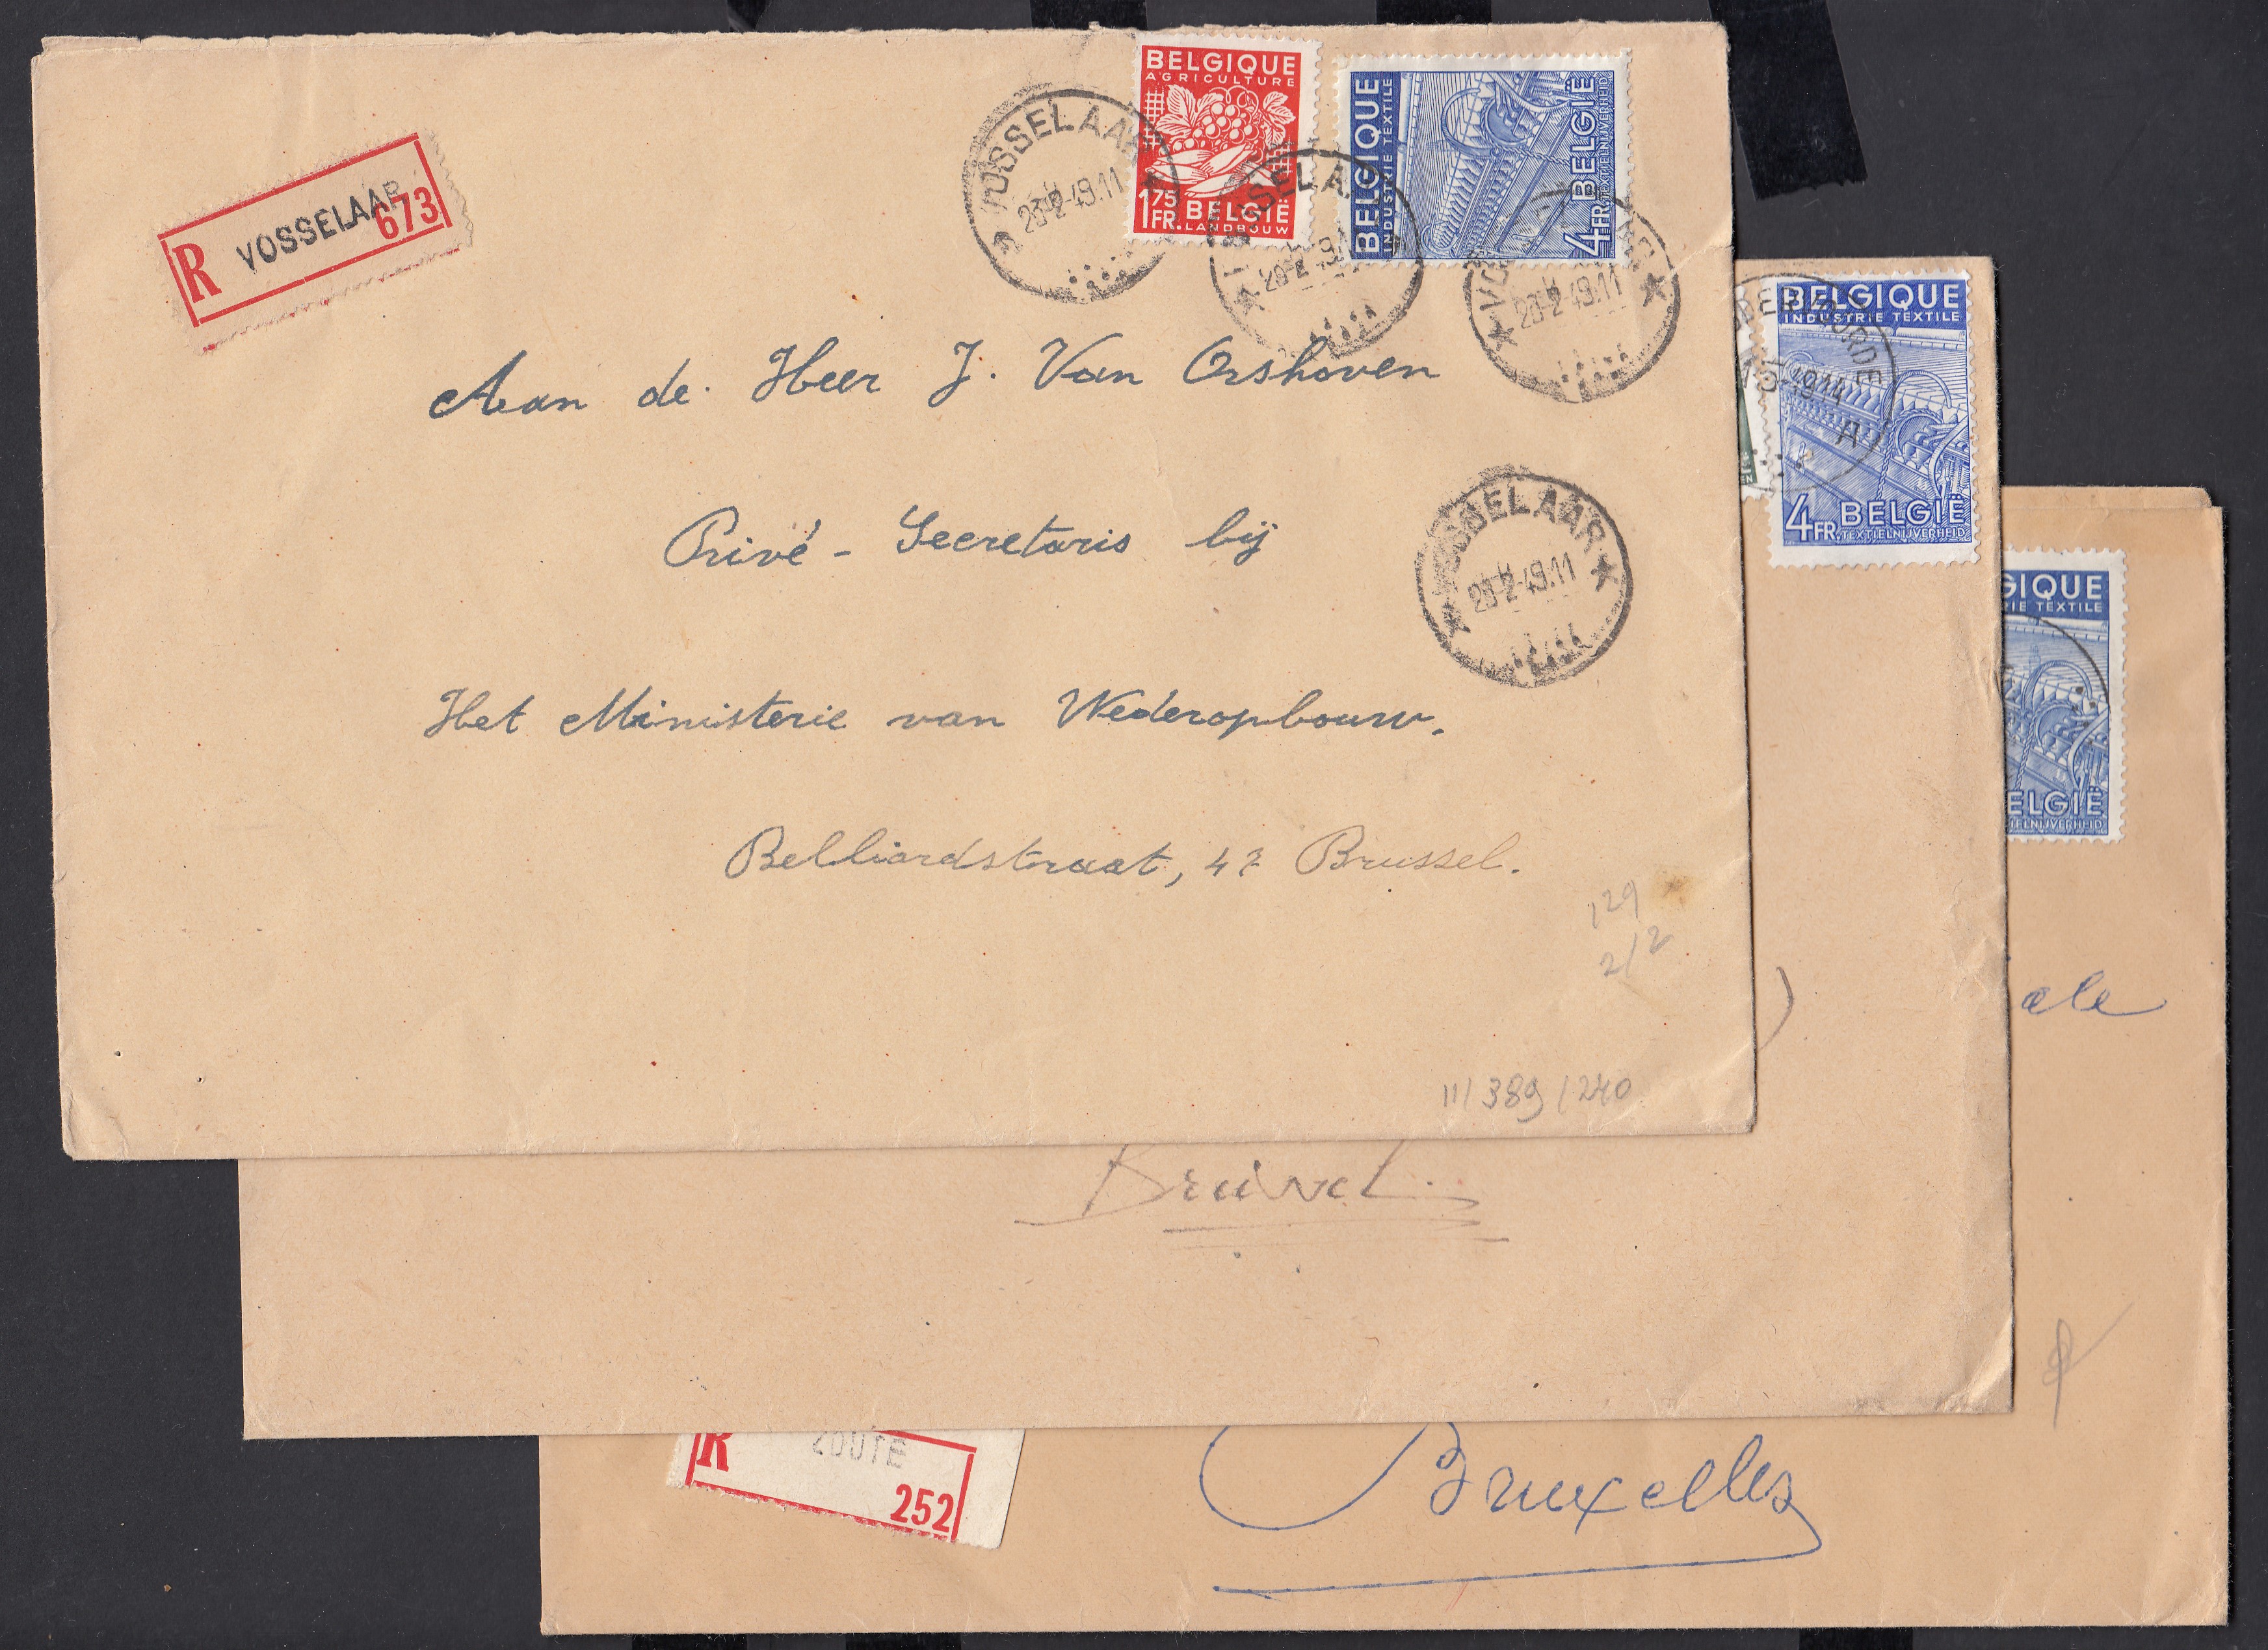 R VOSSELAAR 673
BELGIQUE
AGRICULTURE
1 75 FR. BELGIË
LANDBOUW
BELGIQUE
INDUSTRIE TEXTILE
4 FR. BELGIË
TEXTIELNIJVERHEID
VOSSELAAR
28-2-49.11
VOSSELAAR
28-2-49.11
Aan de Heer J. Van Orshoven
Privé - Secretaris bij
Het Ministerie van Wederopbouw.
Belliardstraat, 47 Brussel.
129
2/2
III/389/240
BELGIQUE
INDUSTRIE TEXTILE
4 FR. BELGIË
TEXTIELNIJVERHEID
Brussel.
GIQUE
IE TEXTILE
ELGIË
IELNIJVERHEID
ale
R ZOUTE
252
Bruxelles